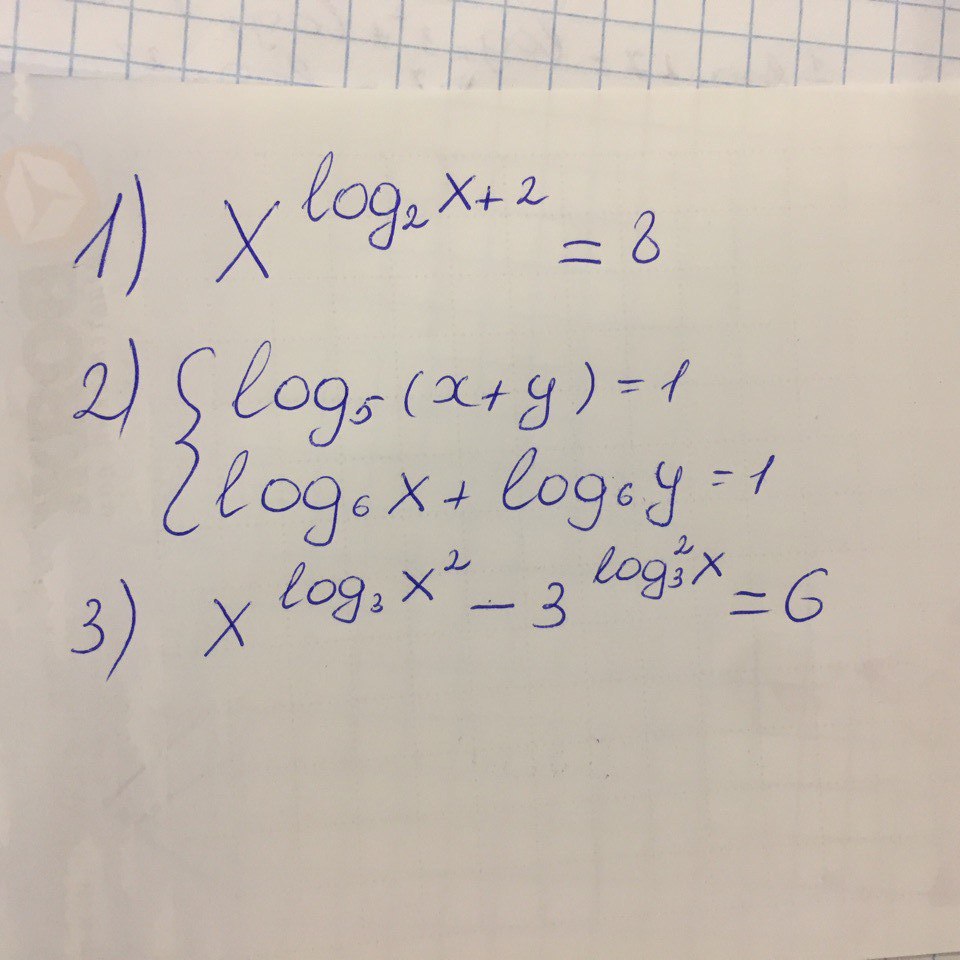 1) x^{log₂ x+2} = 8
2) { log₅ (x+y) = 1
log₆ x + log₆ y = 1
3) x^{log₃ x²} - 3^{log₃² x} = 6